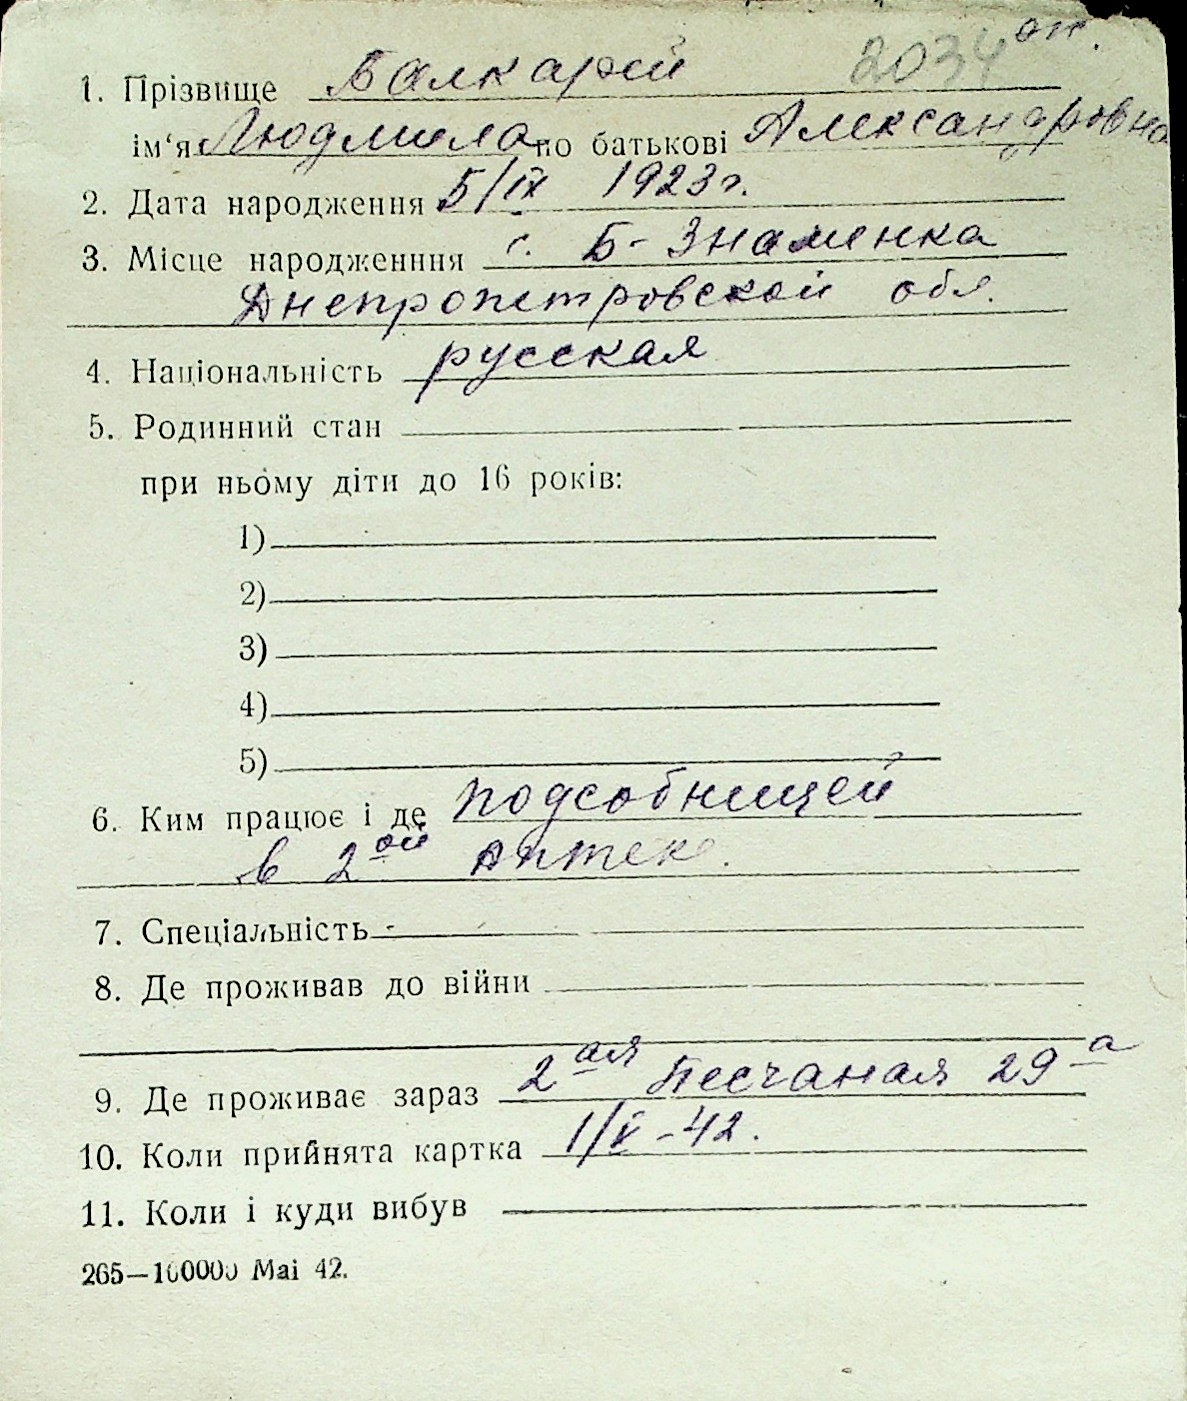 2034 ок.
1. Прізвище Балкарей
ім‘я Людмила по батькові Александровна
2. Дата народження 5/IX 1923 г.
3. Місце народженння с. Б-Знаменка
Днепропетровской обл.
4. Національність русская
5. Родинний стан
при ньому діти до 16 років:
1)
2)
3)
4)
5)
6. Ким працює і де подсобницей
в 2ой аптеке.
7. Спеціальність -
8. Де проживав до війни
9. Де проживає зараз 2ая Песчаная 29а
10. Коли прийнята картка 1/X-42.
11. Коли і куди вибув
265—100000 Маі 42.